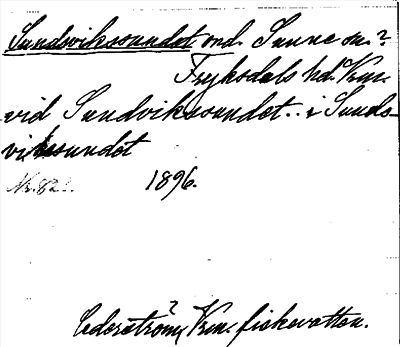 Sundsviksundet ond. Sunne sn.?
Fryksdals hd. Vrm.
vid Sundviksundet .. i Sunds-
viksundet
Nr. 82. 1896.
Cederström, ? Vrm. fiskevatten.